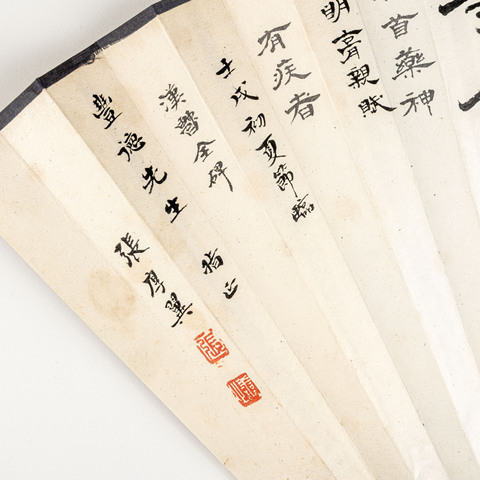 首藥神
明膏親賦
有疾者
壬戌初夏節臨
漢曹全碑
豐德先生 指正
張厚翼
張